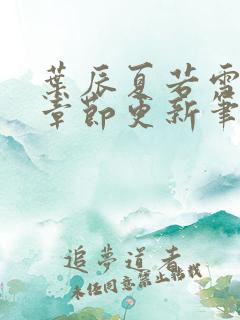 葉辰夏若雪
章節更新筆
追夢道者
未經同意禁止轉載